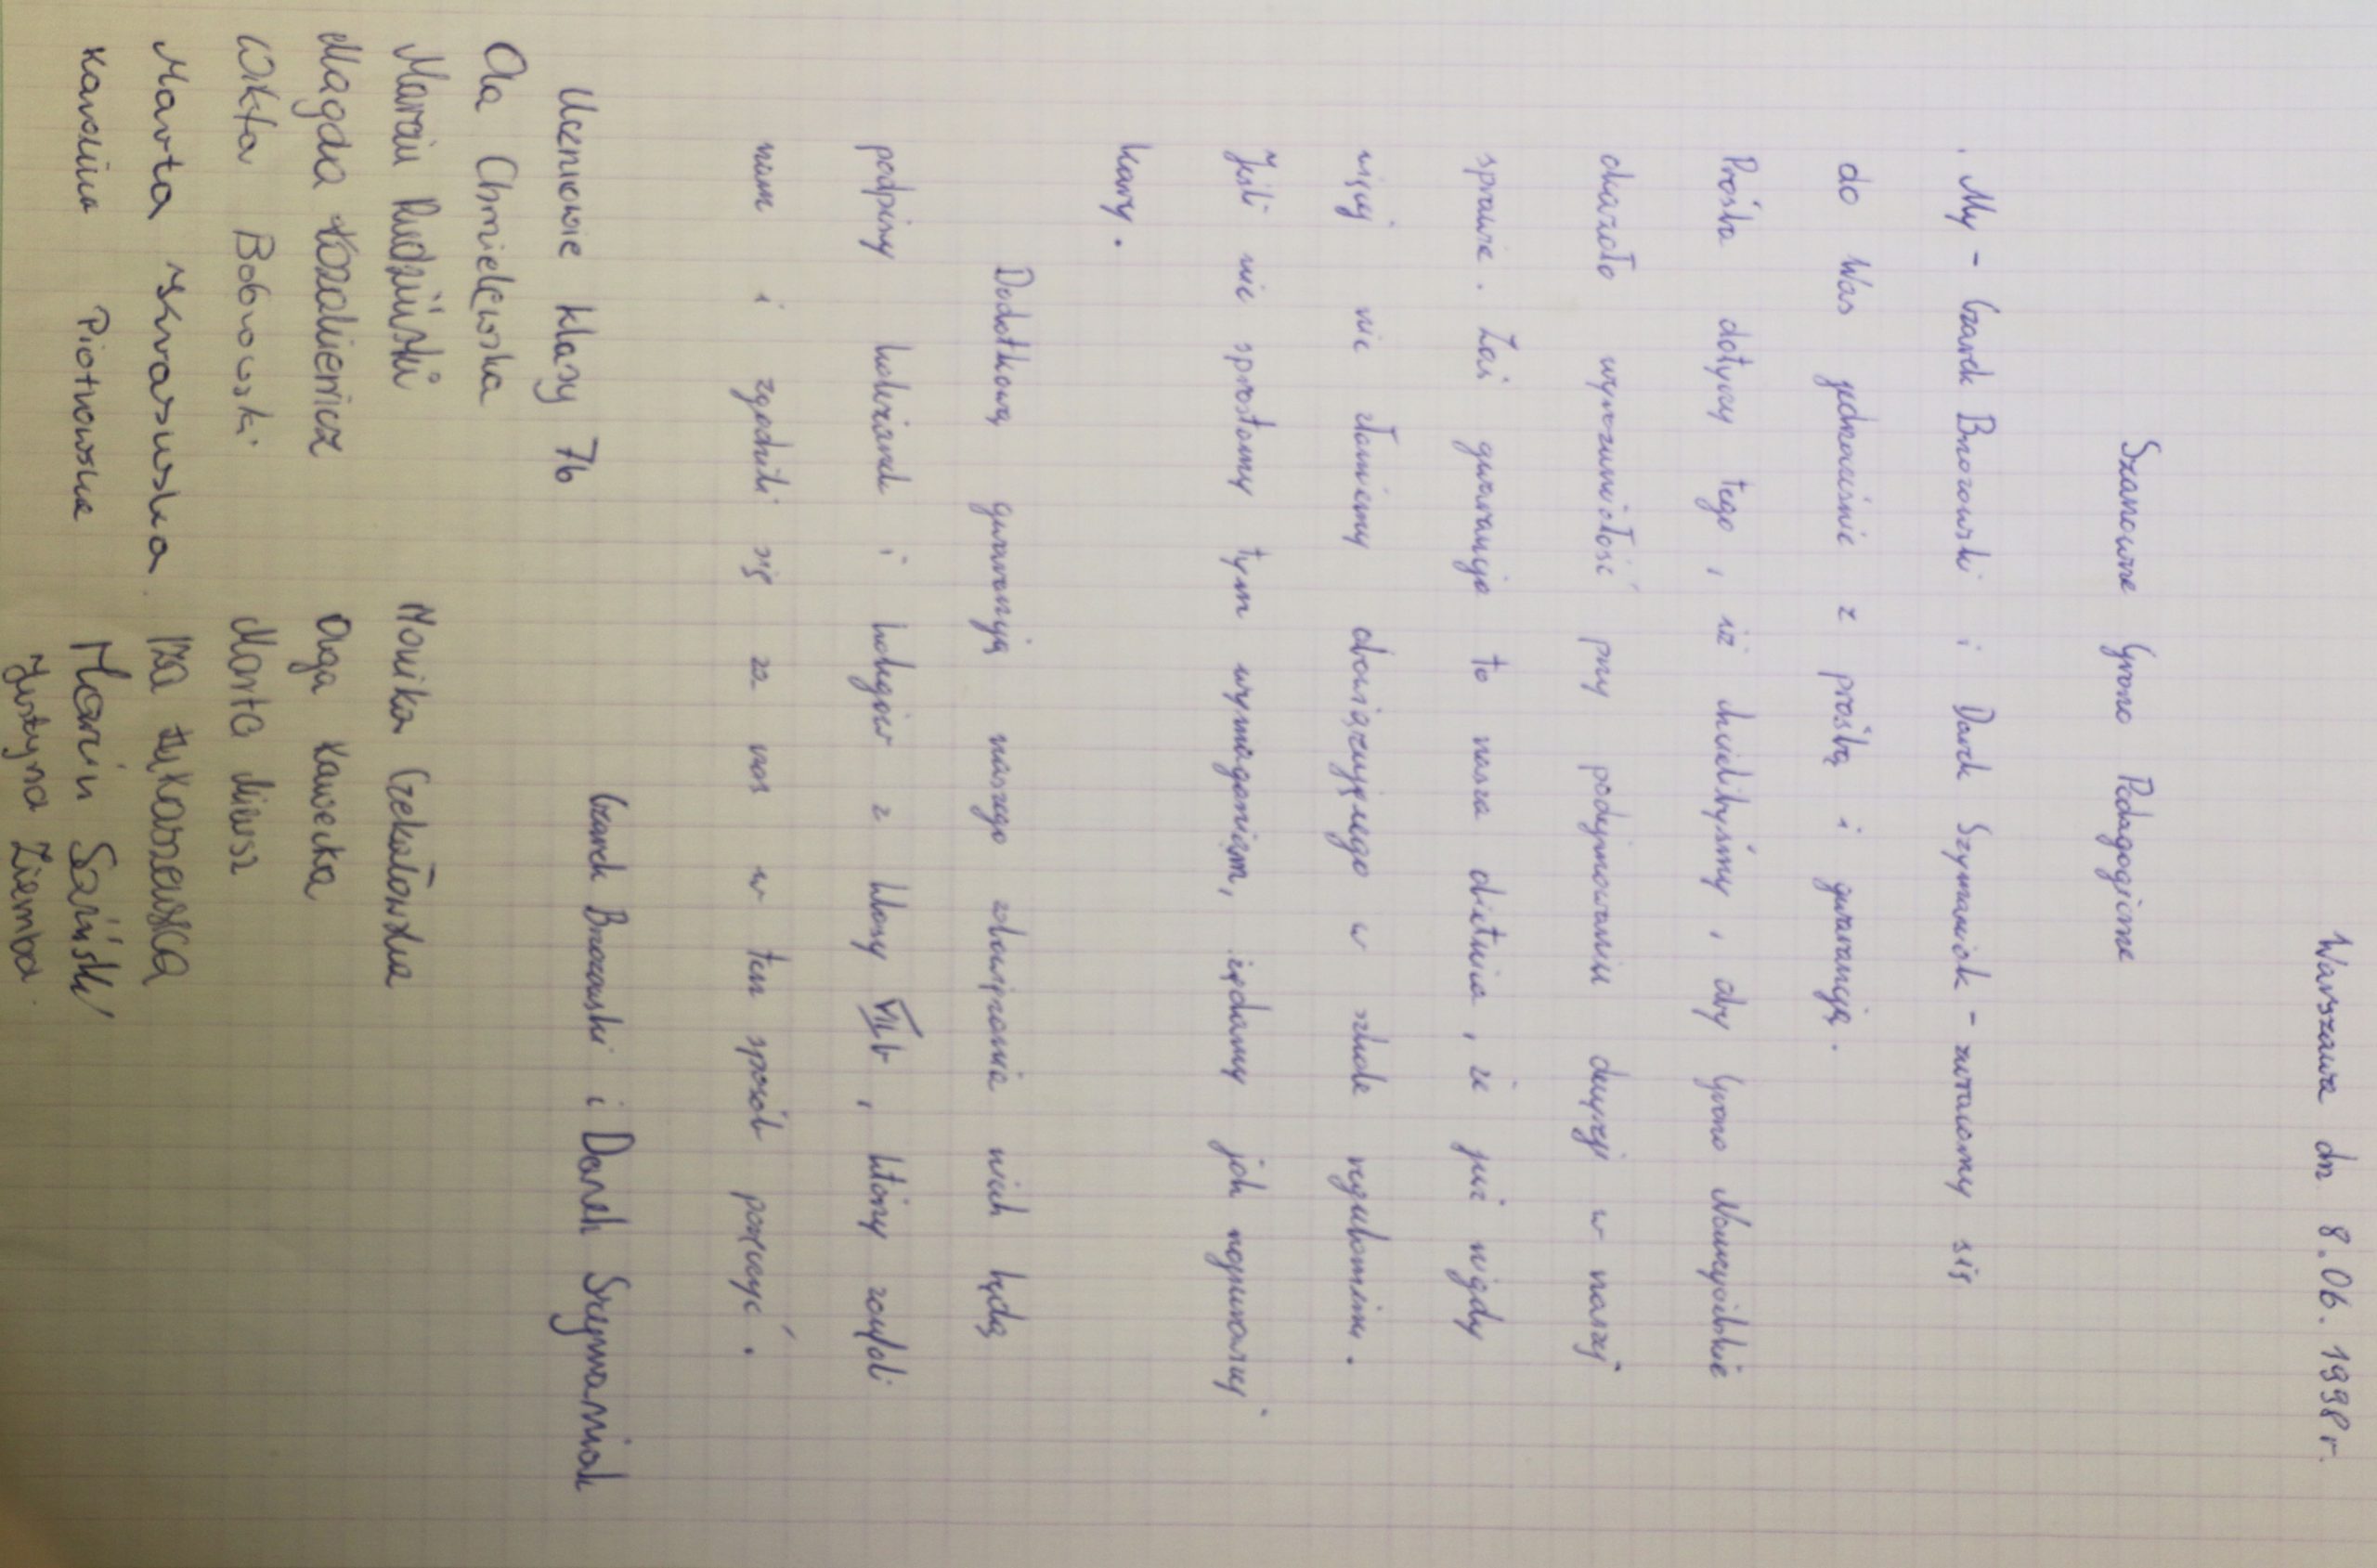 Warszawa dn 8.06.1998r.
Szanowne Grono Pedagogiczne
My - Czarek Brzozowski i Darek Szymaniak - zwracamy się
do Was jednocześnie z prośbą i gwarancją.
Prośba dotyczy tego, iż chcielibyśmy, aby Grono Nauczycielskie
okazało wyrozumiałość przy podejmowaniu decyzji w naszej
sprawie. Zaś gwarancja to nasza obietnica, że już nigdy
więcej nie złamiemy obowiązującego w szkole regulaminu.
Jeśli nie sprostamy tym wymaganiom, żądamy jak najsurowszej
kary.
Dodatkową gwarancją naszego zobowiązania niech będą
podpisy koleżanek i kolegów z klasy VIIb, którzy zaufali
nam i zgodzili się za nas w ten sposób poręczyć.
Czarek Brzozowski i Darek Szymaniak
Uczniowie klasy 7b
Ola Chmielewska
Marcin Rudziński
Monika Czekałowska
Magda Kozakiewicz
Olga Kawecka
Wikta Bobrowski
Marta Miłusz
Marta Skrasuska
Iza Łukaszewska
Karolina Piotrowska
Marcin Sasiński
Justyna Ziemba.